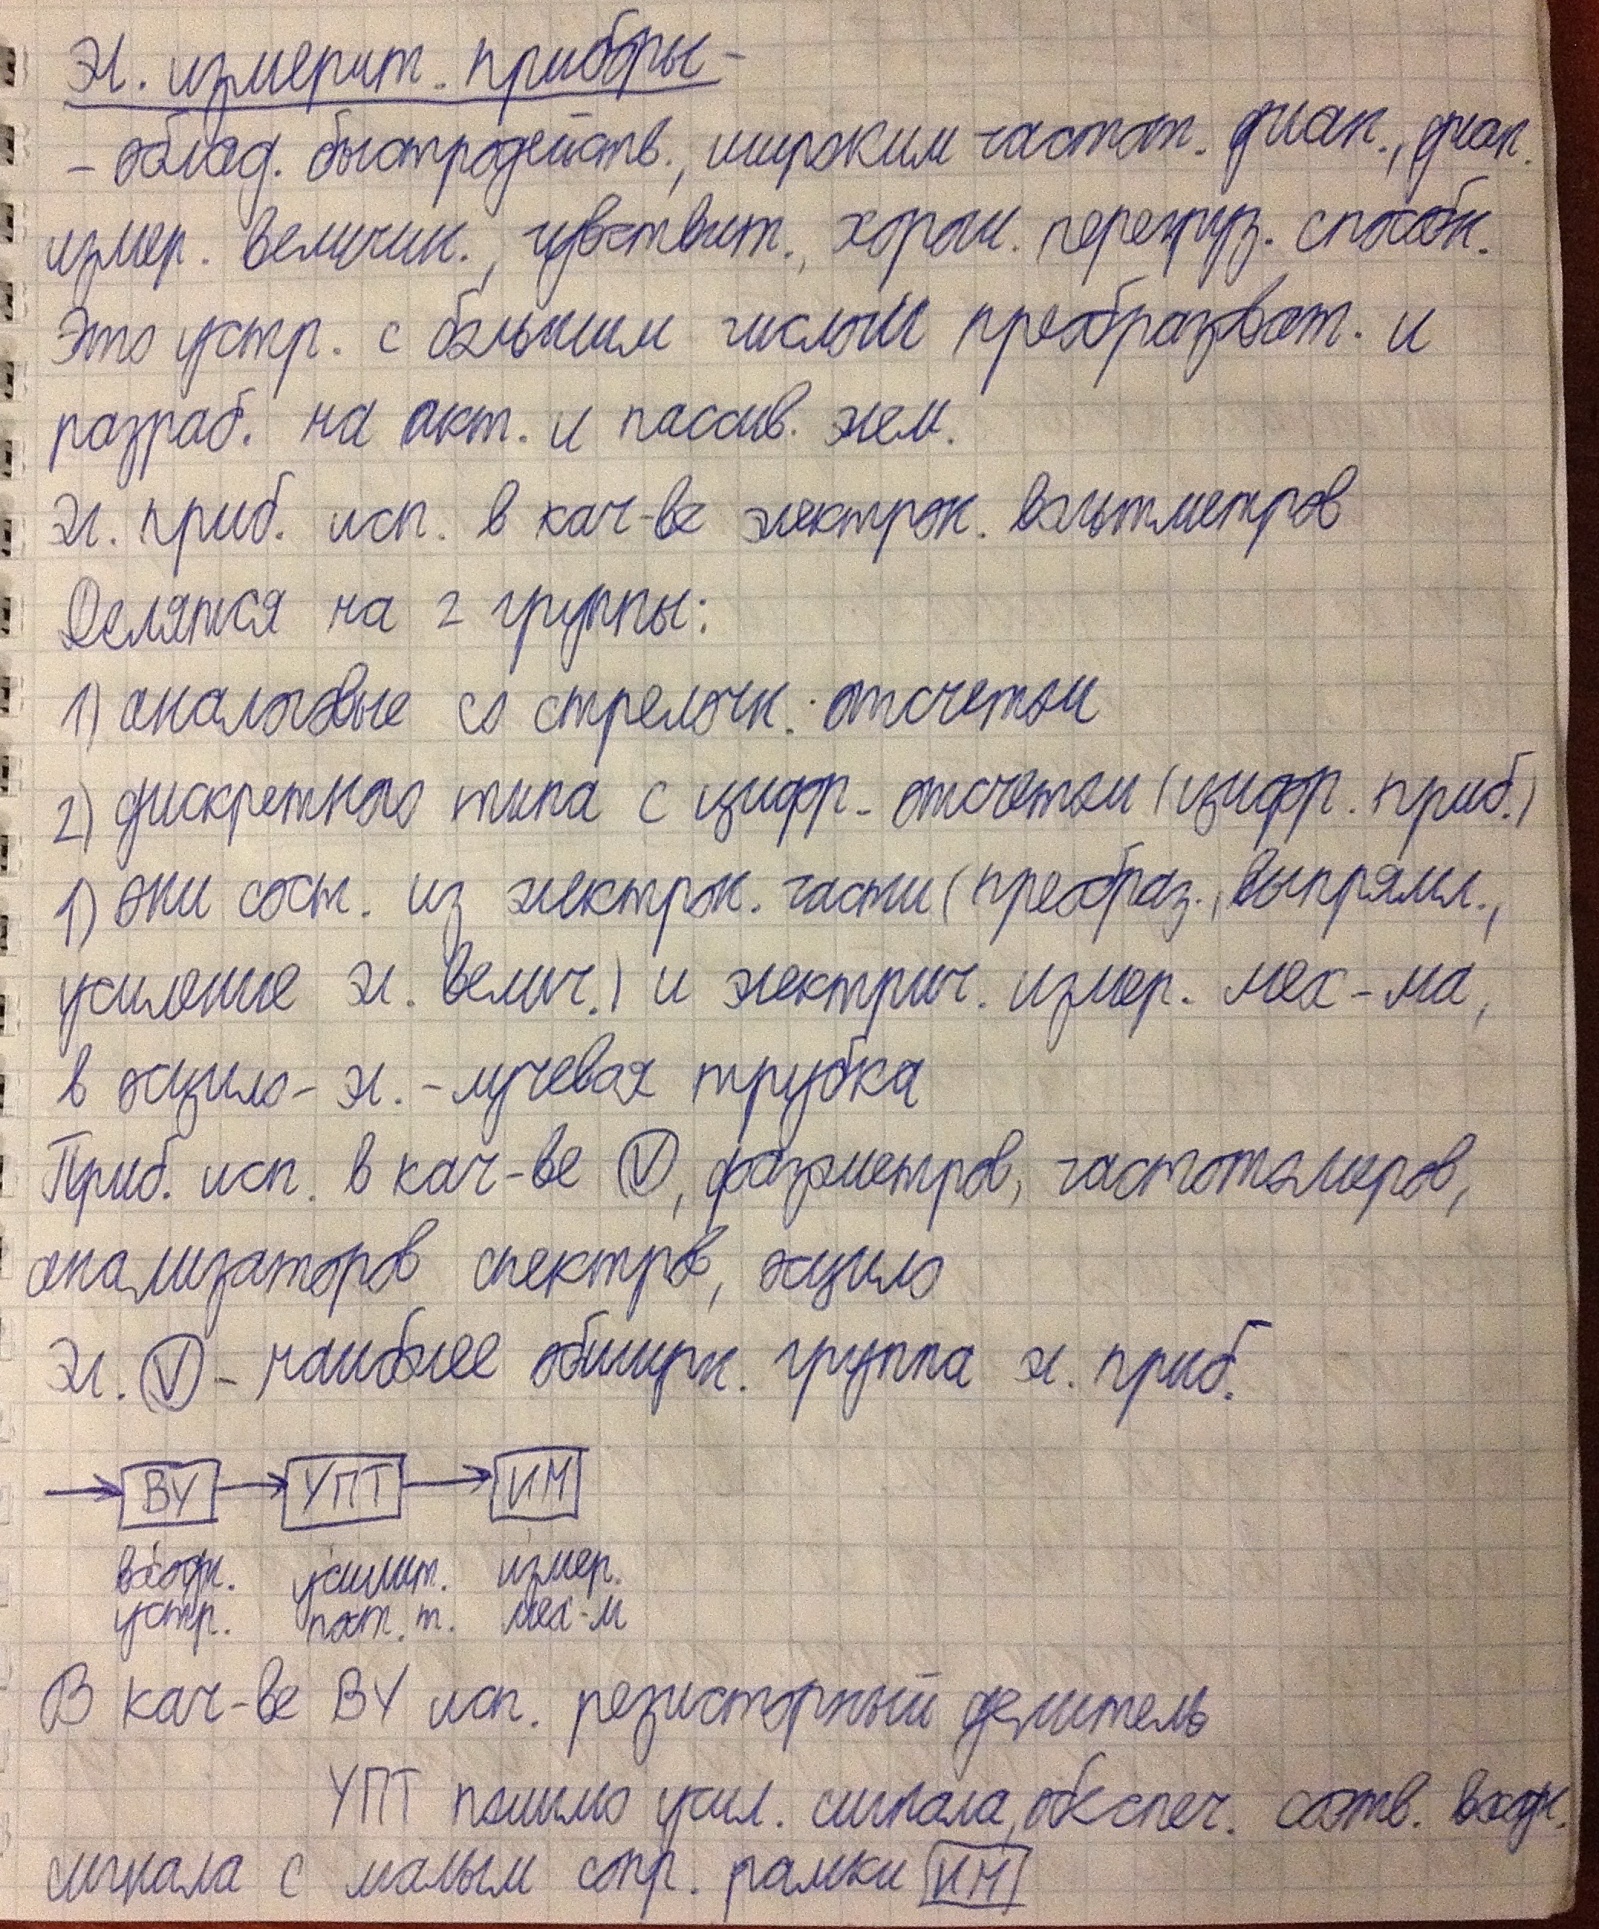 Эл. измерит. приборы -
- облад. быстродейств., широким частот. диап., диап.
измер. величин., чувствит., хорош. перегруз. способн.
Это устр. с большим числом преобразоват. и
разраб. на акт. и пассив. элем.
Эл. приб. исп. в кач-ве электрон. вольтметров
Делятся на 2 группы:
1) аналоговые со стрелочн. отсчетом
2) дискретного типа с цифр. отсчетом (цифр. приб.)
1) они сост. из электрон. части (преобраз., выпрямл.,
усиление эл. велич.) и электрич. измер. мех-ма,
в осцило- эл.-лучевая трубка
Приб. исп. в кач-ве V, фазометров, частотомеров,
анализаторов спектров, осцило
Эл. V - наиболее обширн. группа эл. приб.
ВУ УПТ ИМ
входн. усилит. измер.
устр. пост. т. мех-м
В кач-ве ВУ исп. резисторный делитель
УПТ помимо усил. сигнала, обеспеч. соотв. входн.
сигнала с малым сопр. рамки ИМ